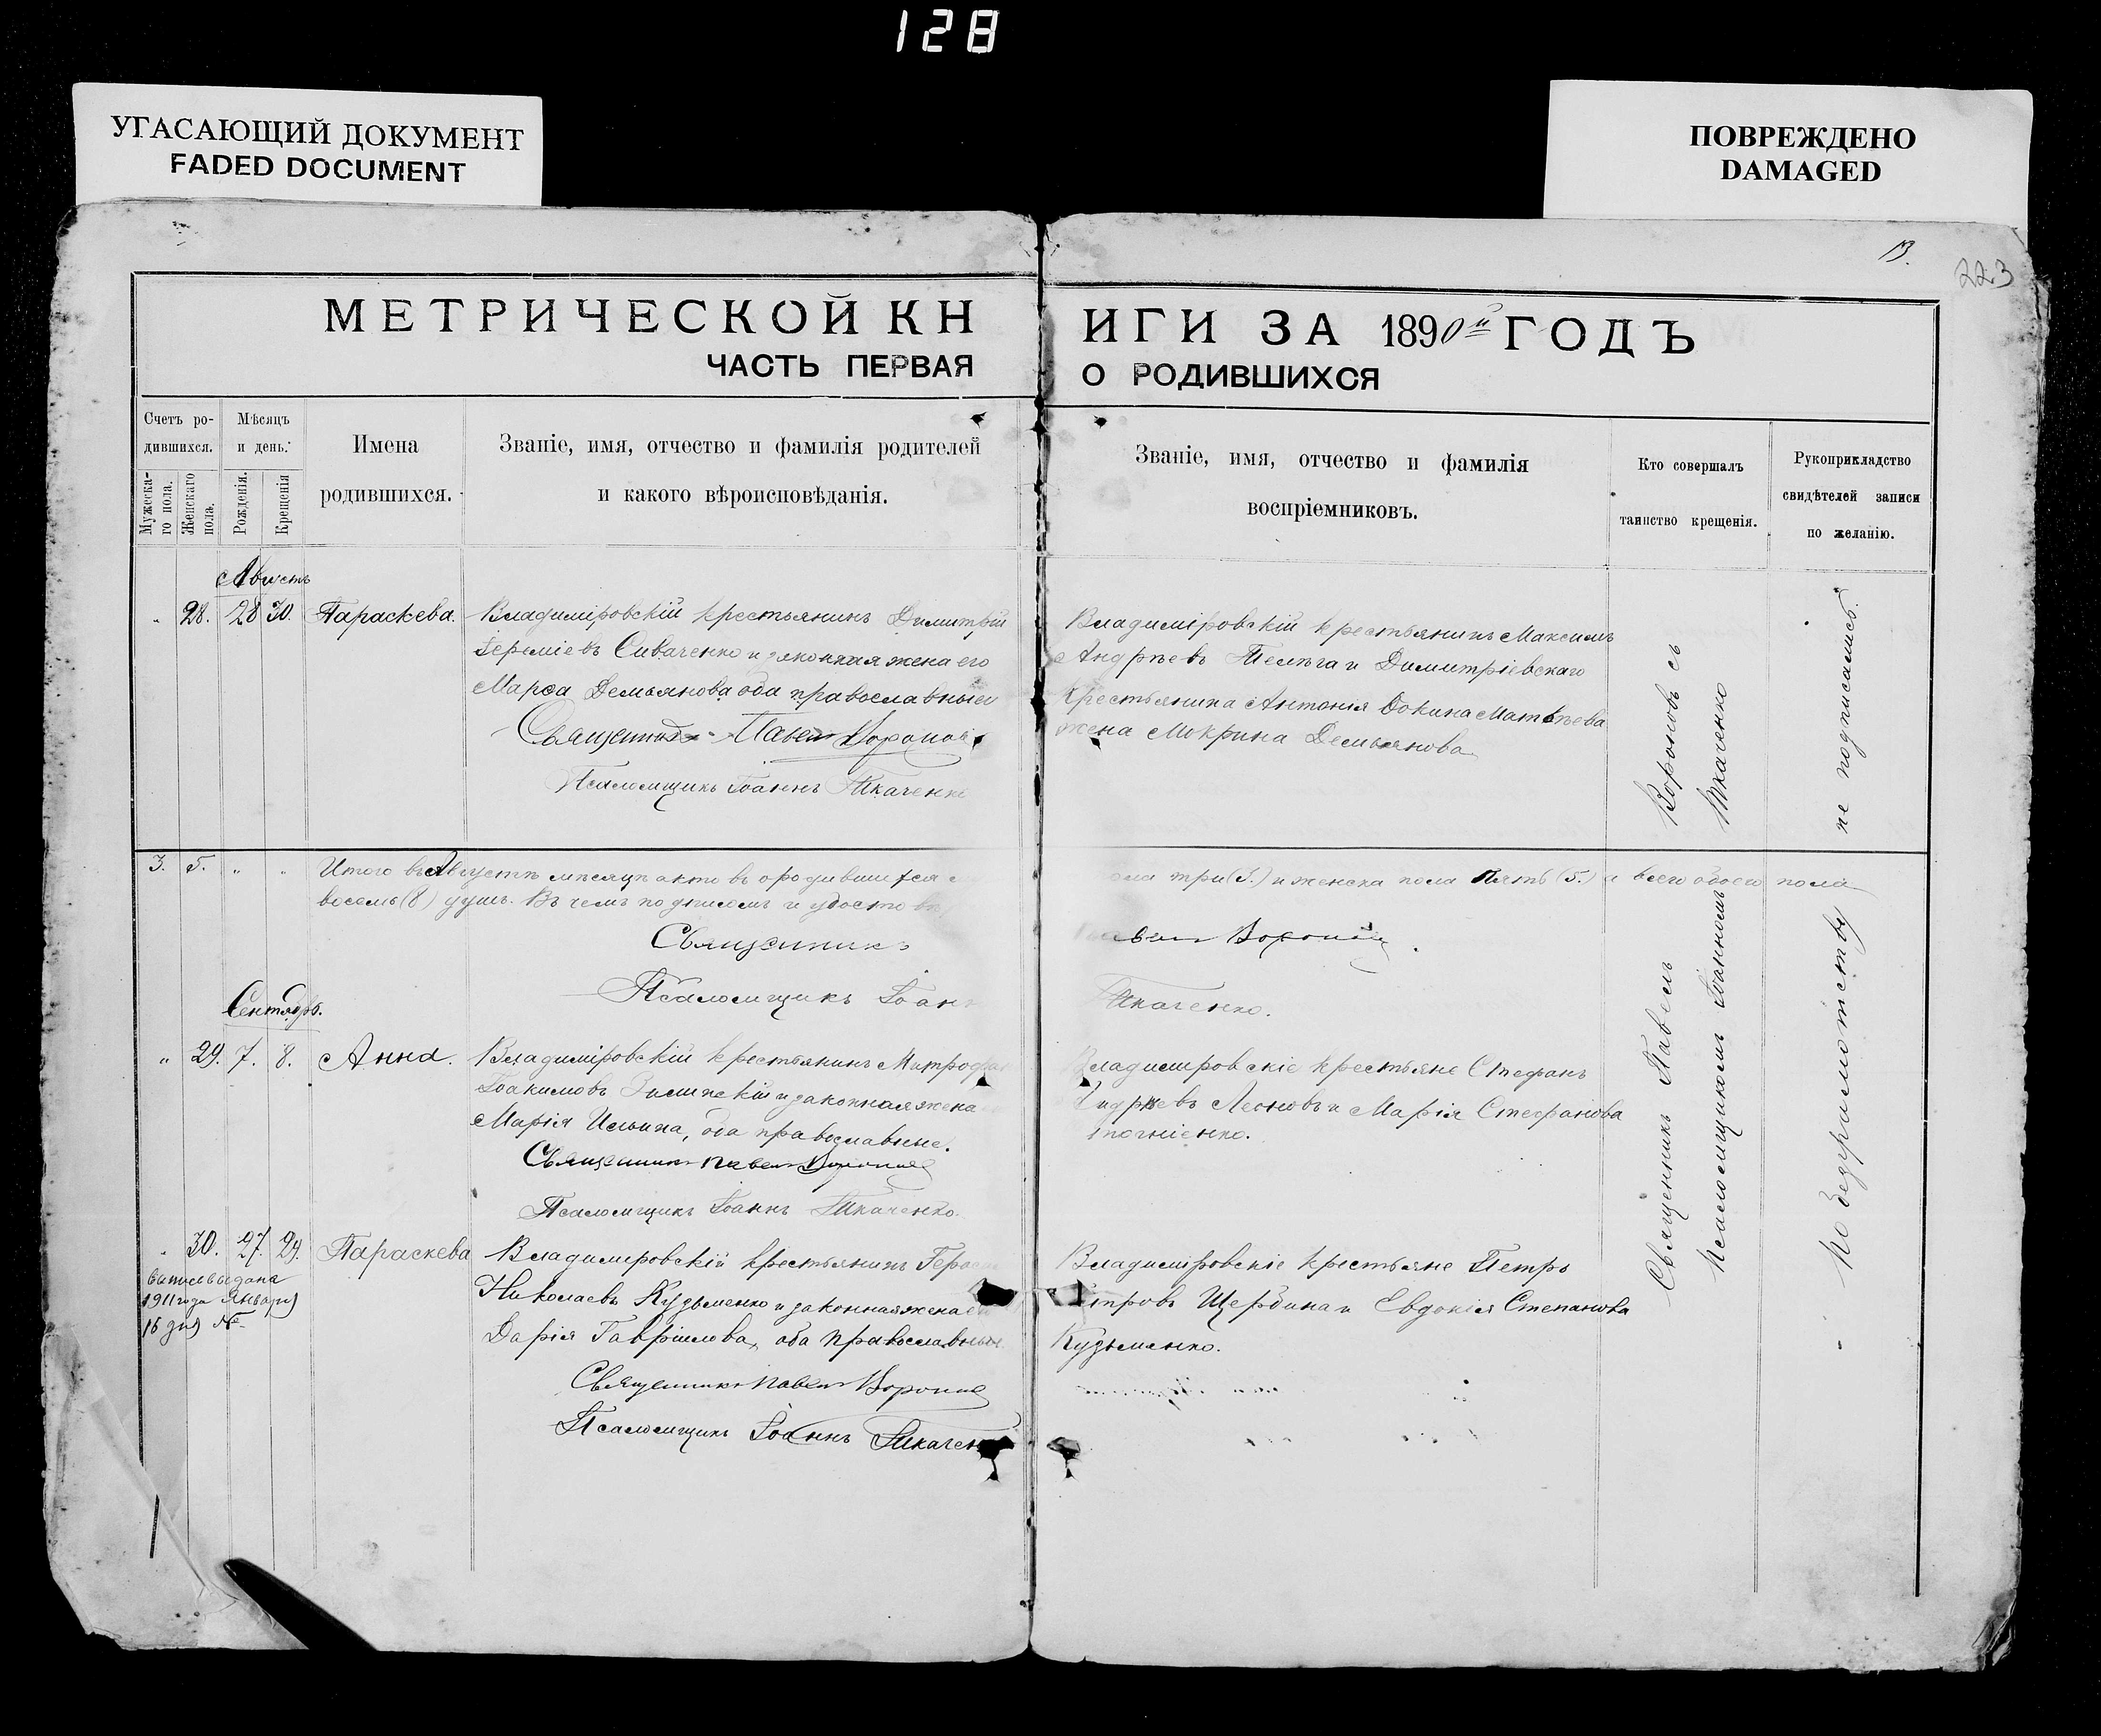 128
УГАСАЮЩИЙ ДОКУМЕНТ
FADED DOCUMENT
ПОВРЕЖДЕНО
DAMAGED
13.
223
МЕТРИЧЕСКОЙ КНИГИ ЗА 1890й ГОДЪ
ЧАСТЬ ПЕРВАЯ О РОДИВШИХСЯ
Счетъ ро-
дившихся.
Мужеска-
го пола.
Женскаго
пола.
Мѣсяцъ
и день.
Рожденія.
Крещенія
Имена
родившихся.
Званіе, имя, отчество и фамилія родителей
и какого вѣроисповѣданія.
Званіе, имя, отчество и фамилія
воспріемниковъ.
Кто совершалъ
таинство крещенія.
Рукоприкладство
свидѣтелей записи
по желанію.
Августъ
" 28. 28 30. Параскева.
Владиміровскій крестьянинъ Димитрій
Іереміевъ Сиваченко и законная жена его
Марѳа Демьянова оба православные
Священникъ Павелъ Вороновъ
Псаломщикъ Іоаннъ Ткаченко
Владиміровскій крестьянинъ Максимъ
Андрѣевъ Телѣга и Димитріевскаго
крестьянина Антонія Матвѣева
жена Мокрина Демьянова
Вороновъ съ
Ткаченко
не подписались.
3. 5. " " Итого въ Августѣ мѣсяцѣ актовъ о родившихся
ола три (3.) и женска пола пять (5.) а всего обоего пола
восемь (8) душъ. Въ чемъ подписомъ и удостовѣ
Священникъ Павелъ Вороновъ
Псаломщикъ Іоаннъ Ткаченко.
Сентябрь.
" 29. 7. 8. Анна.
Владиміровскій крестьянинъ Митрофан
Іоакимовъ и законная жена
Марія Ильина, оба православные.
Священникъ Павелъ Вороновъ
Псаломщикъ Іоаннъ Ткаченко.
Владиміровскіе крестьяне Стефанъ
Андрѣевъ Леоновъ и Марія Стефанова
Священникъ Павелъ
Псаломщикомъ Іоанномъ
по безграмотству
" 30. 27. 29. Параскева
выпись выдана
1911 года Января
16 дня №
Владиміровскій крестьянинъ Герасим
Николаевъ Кузьменко и законная жена его
Дарія Гавріилова, оба православные
Священникъ Павелъ Вороновъ
Псаломщикъ Іоаннъ Ткачен
Владиміровскіе крестьяне Петръ
Петровъ Щербина и Евдокія Степанова
Кузьменко.